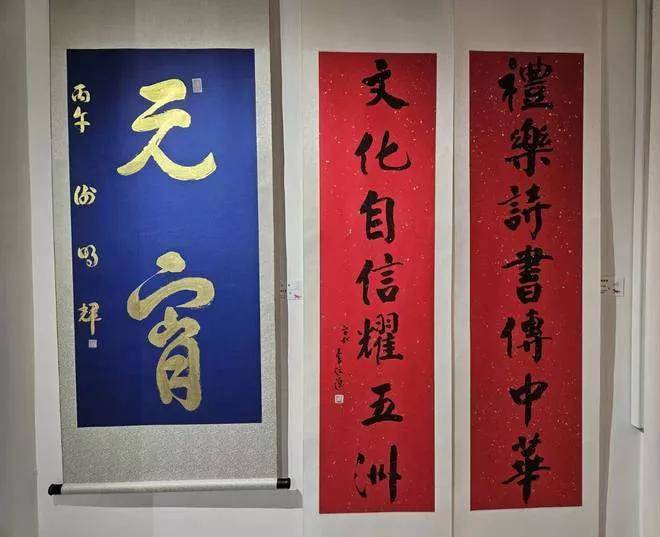 禮樂詩書傳中華
文化自信耀五洲
元宵
丙午 明輝